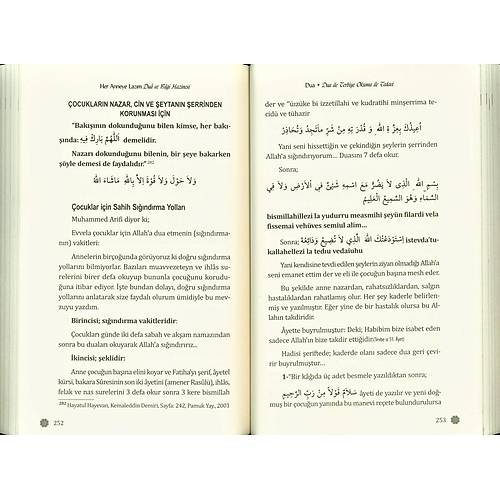 Her Anneye Lazım Duâ ve Bilgi Hazinesi
ÇOCUKLARIN NAZAR, CİN VE ŞEYTANIN ŞERRİNDEN
KORUNMASI İÇİN
"Bakışının dokunduğunu bilen kimse, her bakı-
şında: اَللّٰهُمَّ بَارِكْ فِيهِ demelidir.
Nazarı dokunduğunu bilenin, bir şeye bakarken
şöyle demesi de faydalıdır." 282
وَلاَ حَوْلَ وَلاَ قُوَّةَ اِلاَّ بِاللّٰهِ مَاشَاءَ اللّٰهُ
Çocuklar için Sahih Sığındırma Yolları
Muhammed Arifi diyor ki;
Evvela çocuklar için Allah'a dua etmenin (sığındır-
manın) vakitleri:
Annelerin birçoğunda görüyoruz ki doğru sığındırma
yollarını bilmiyorlar. Bazıları muavvezeteyn ve ihlâs sure-
lerini birer defa okumanın dualarıyla çocuklarını korudu-
ğuna itibar ediyor. İşte bundan dolayı, doğru sığındırma
yollarını anlatarak size faydalı olurum ümidiyle bu mev-
zuyu yazdım.
Birincisi; sığındırma vakitleridir:
Çocukları günde iki defa sabah ve akşam namazından
sonra bu duaları okuyarak Allah'a sığındırırız...
İkincisi; şeklidir:
Anne çocuğun başına elini koyar ve Fatiha'yı şerif, âyetel
kürsi, bakara Sûresinin son iki âyetini (amener Rasûlü), ihlâs,
felak ve nas surelerini 3 defa okur sonra 3 kere bismillah
282 Hayatul Hayevan, Kemaleddin Demiri, Sayfa: 242, Pamuk Yay, 2001
252
Dua • Dua ile Terbiye Okuma ile Tedavi
der ve "ürzüke bi izzetillahi ve kudratihi minşerrima
tecidü ve tühazir
اُعِيذُكَ بِعِزَّةِ اللّٰهِ وَ قُدْرَتِهِ مِنْ شَرِّ مَاتَجِدُ وَتُحَاذِرُ
Yani seni hissettiğin ve çekindiğin şeylerin şerrinden
Allah'a sığındırıyorum... Duasını 7 defa okur.
Sonra;
بِسْمِ اللّٰهِ الَّذِى لَا يَضُرُّ مَعَ اسْمِهِ شَيْئٌ فِى الْاَرْضِ وَلَا فِى
السَّمَاءِ وَهُوَ السَّمِيعُ الْعَلِيمُ
bismillahillezi la yudurru measmihi şeyün filardi vela
fissemai vehüves semiul alim...
Sonra; اِسْتَوْدَعْتُكَ اللّٰهَ الَّذِي لَا تَضِيعُ وَدَائِعُهُ istevda'tu-
kallahellezi la tedu vedaiuhu
Yani kendisine tevdi edilen şeylerin ziyan olmadığı Allah'a
seni emanet ettim der ve eli ile çocuğun başına mesh eder.
Bu şekilde anne nazardan, rahatsızlıklardan, salgın
hastalıklardan rahatlamış olur. Her şey kaderle belirlen-
miş ve yazılmıştır. Eğer yine de bir hastalık olursa bu Al-
lahın takdiridir.
Âyette buyrulmuştur: Deki; Habibim bize isabet eden
sadece Allah'ın bize takdir ettiğidir.(Tevbe s/ 51. Âyet)
Hadisi şeriftede; kaderde olanı sadece dua geri çevi-
rir buyrulmuştur...
1-"Bir kâğıda üç adet besmele yazıldıktan sonra;
سَلَامٌ قَوْلًا مِنْ رَبٍّ الرَّحِيمِ âyeti de yazılır ve yeni doğ-
muş bir çocuğun yanında bu manevi reçete bulundurulursa
253